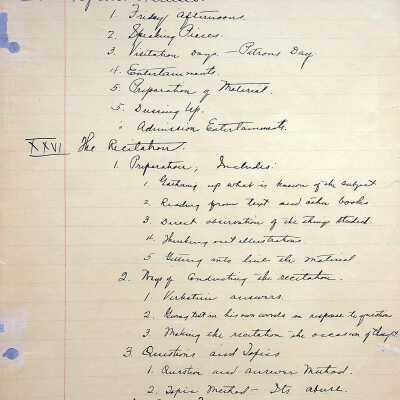 1. Friday Afternoons.
2. Speaking Pieces.
3. Visitation Days – Patrons Day
4. Entertainments.
5. Preparation of Material.
5. Dressing Up.
Admission Entertainments.
XXVI The Recitation.
1. Preparation; Includes:
1. Gathering up what is known of the subject
2. Reading from text and other books
3. Direct observation of the things studied
4. Thinking out illustrations
5. Getting into line the material
2. Ways of Conducting the recitation.
1 Verbatim answers.
2. Giving text in his own words in response to question
3. Making the recitation the occasion of thought
3. Questions and Topics
1. Question and answer Method.
2. Topic Method – Its abuse.